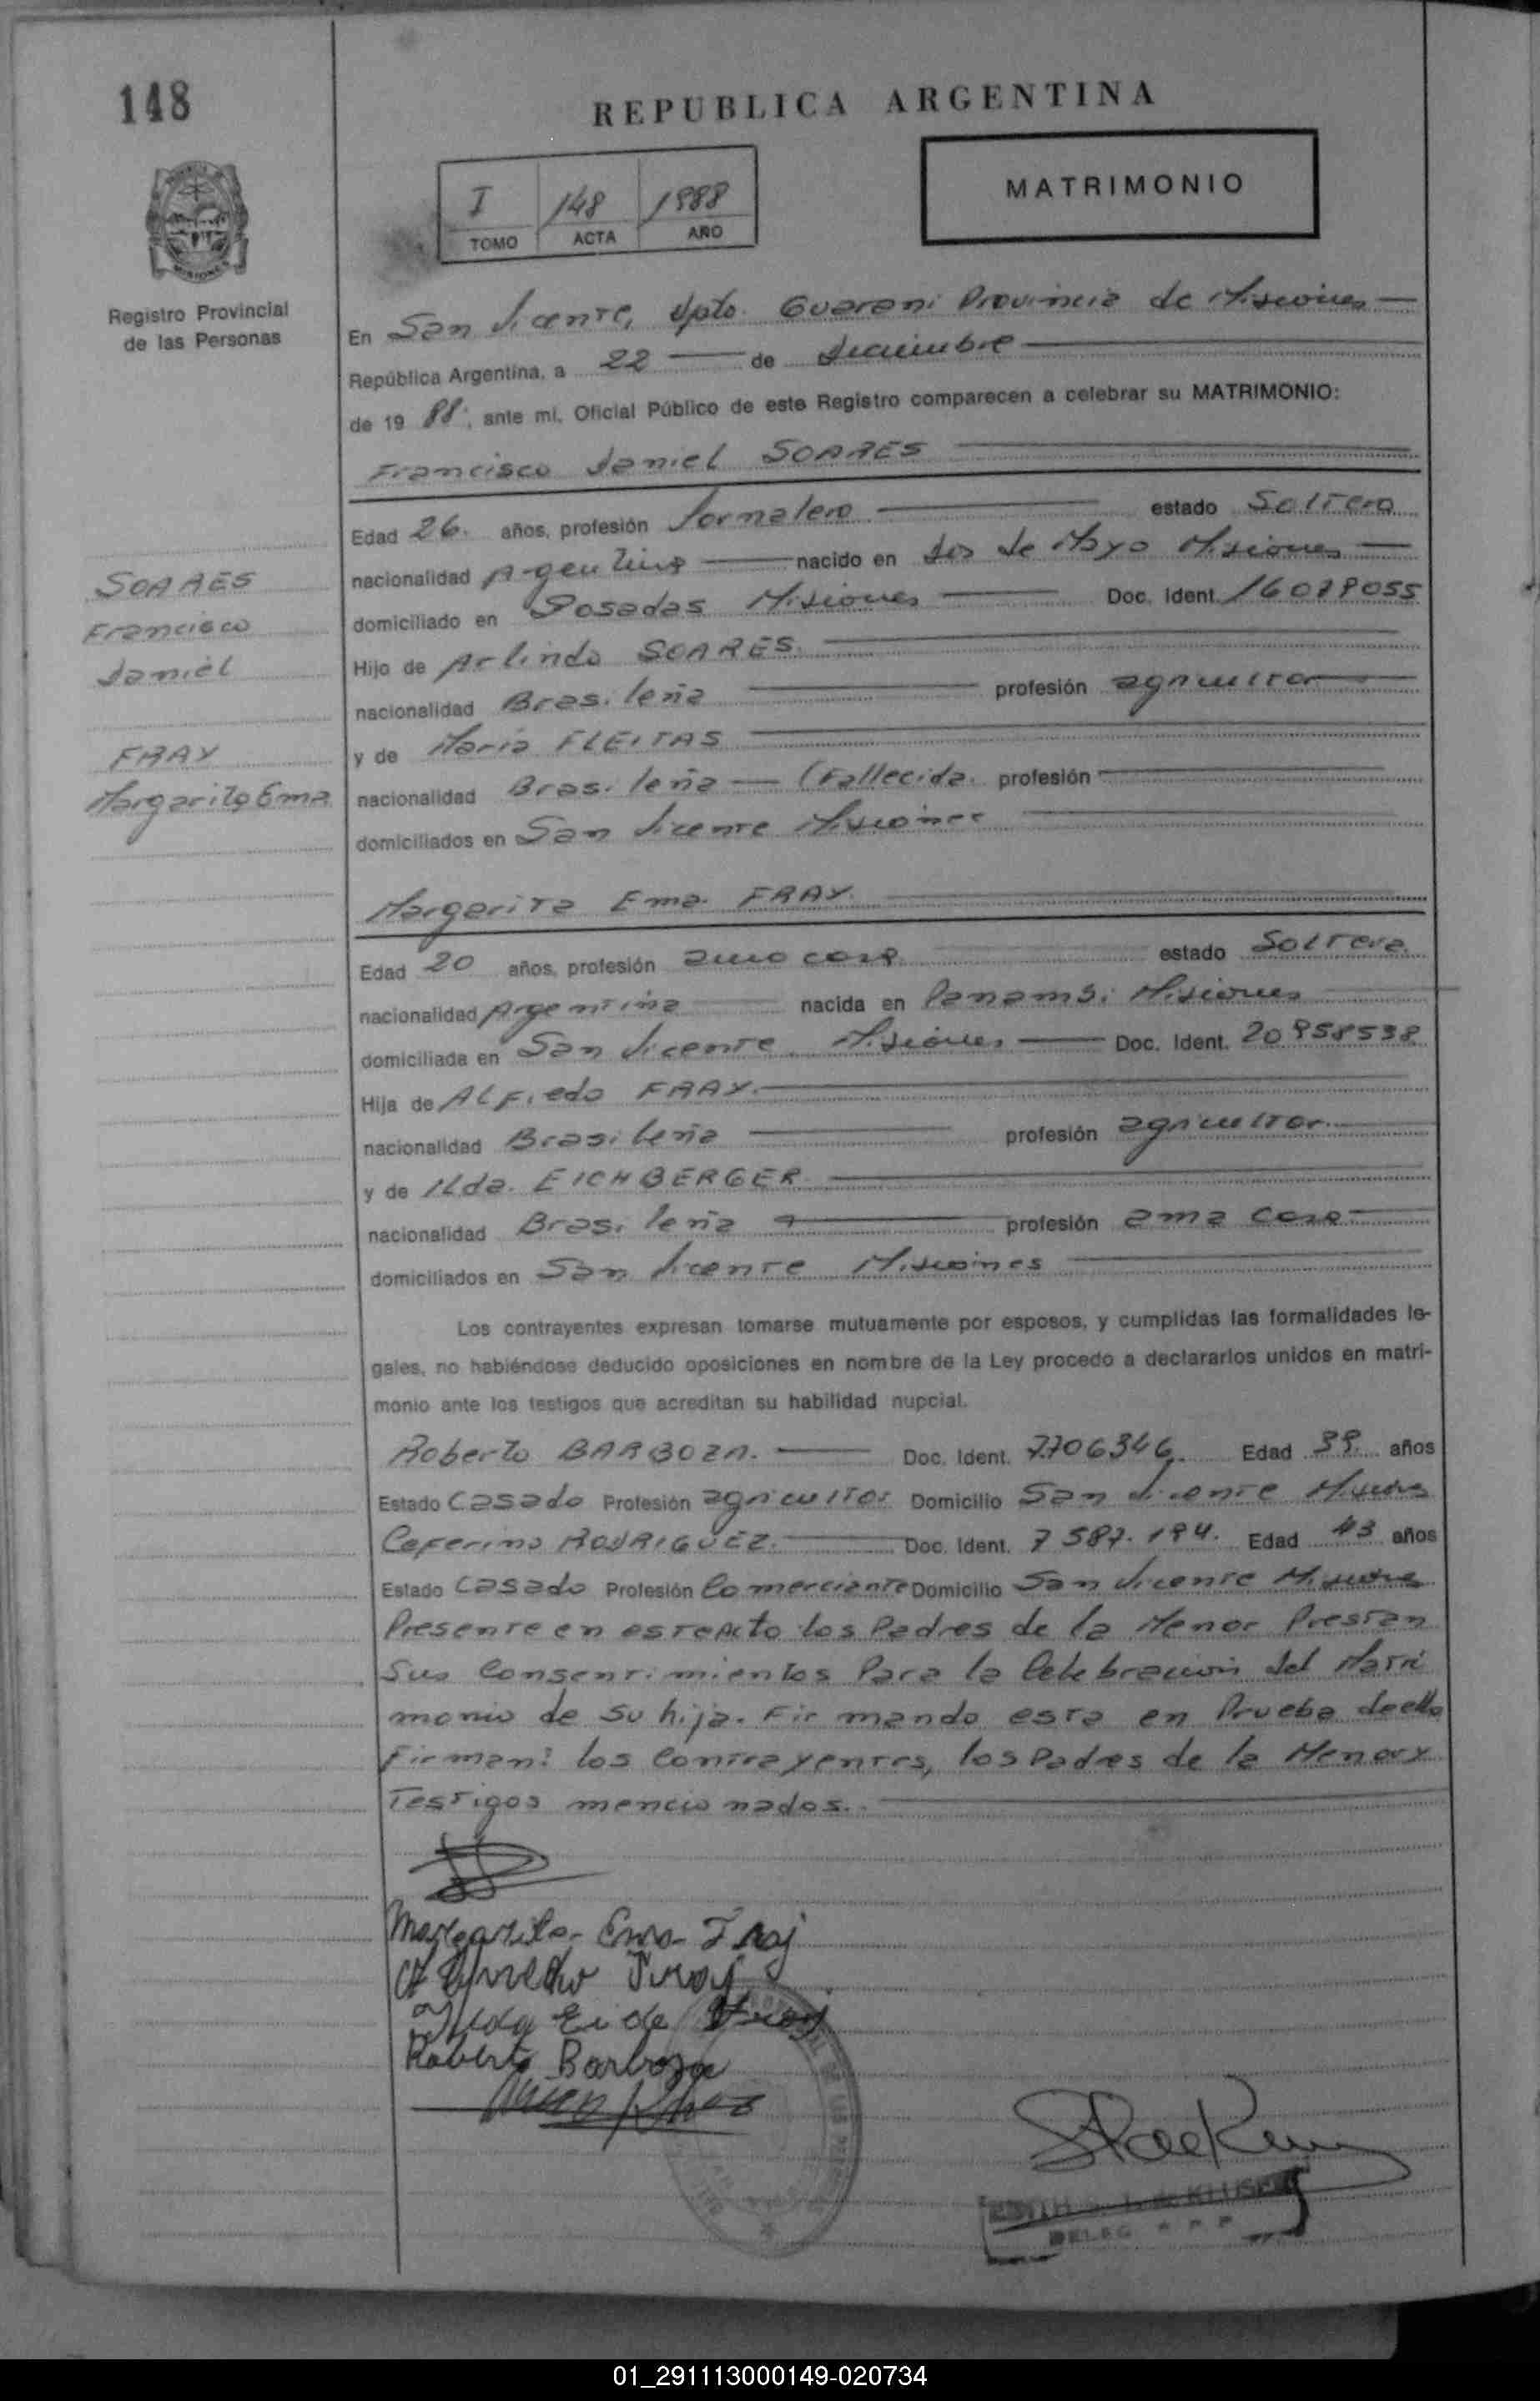 148
REPUBLICA ARGENTINA
I 148 1988
TOMO ACTA AÑO
MATRIMONIO
MISIONES
Registro Provincial
de las Personas
En San Vicente, Dpto. Guarani Provincia de Misiones
República Argentina, a 22 de Diciembre
de 19 88; ante mi, Oficial Público de este Registro comparecen a celebrar su MATRIMONIO:
Francisco Daniel SOARES
Edad 26. años, profesión Jornalero estado Soltero
nacionalidad Argentina nacido en Dos de Mayo Misiones
domiciliado en Posadas Misiones Doc. Ident. 16078055
Hijo de Arlindo SOARES.
nacionalidad Brasileña profesión agricultor
y de Maria FLEITAS
nacionalidad Brasileña (Fallecida. profesión
domiciliados en San Vicente Misiones
SOARES
Francisco
Daniel
FRAY
Margarita Ema
Margarita Ema FRAY.
Edad 20 años, profesión ama casa estado Soltera.
nacionalidad Argentina nacida en Panambi Misiones
domiciliada en San Vicente Misiones Doc. Ident. 20958538
Hija de ALFredo FRAY.
nacionalidad Brasileña profesión agricultor.
y de Ilda. EICHBERGER
nacionalidad Brasileña profesión ama casa
domiciliados en San Vicente Misiones
Los contrayentes expresan tomarse mutuamente por esposos, y cumplidas las formalidades le-
gales, no habiéndose deducido oposiciones en nombre de la Ley procedo a declararlos unidos en matri-
monio ante los testigos que acreditan su habilidad nupcial.
Roberto BARBOZA. Doc. Ident. 7.706346. Edad 39. años
Estado Casado Profesión agricultor Domicilio San Vicente Misiones
Ceferino RODRIGUEZ. Doc. Ident. 7 587.194. Edad 43 años
Estado Casado Profesión Comerciante Domicilio San Vicente Misiones
Presente en este Acto los Padres de la Menor Prestan
Sus Consentimientos Para la Celebracion del Matri
monio de su hija. Firmando esta en Prueba de ello
Firman: los Contrayentes, los Padres de la Menor y
Testigos mencionados.
Margarita Ema Fray
Alfredo Fray
Ilda Ei de Fray
Roberto Barboza
KLUSE
DELEG
01_291113000149-020734